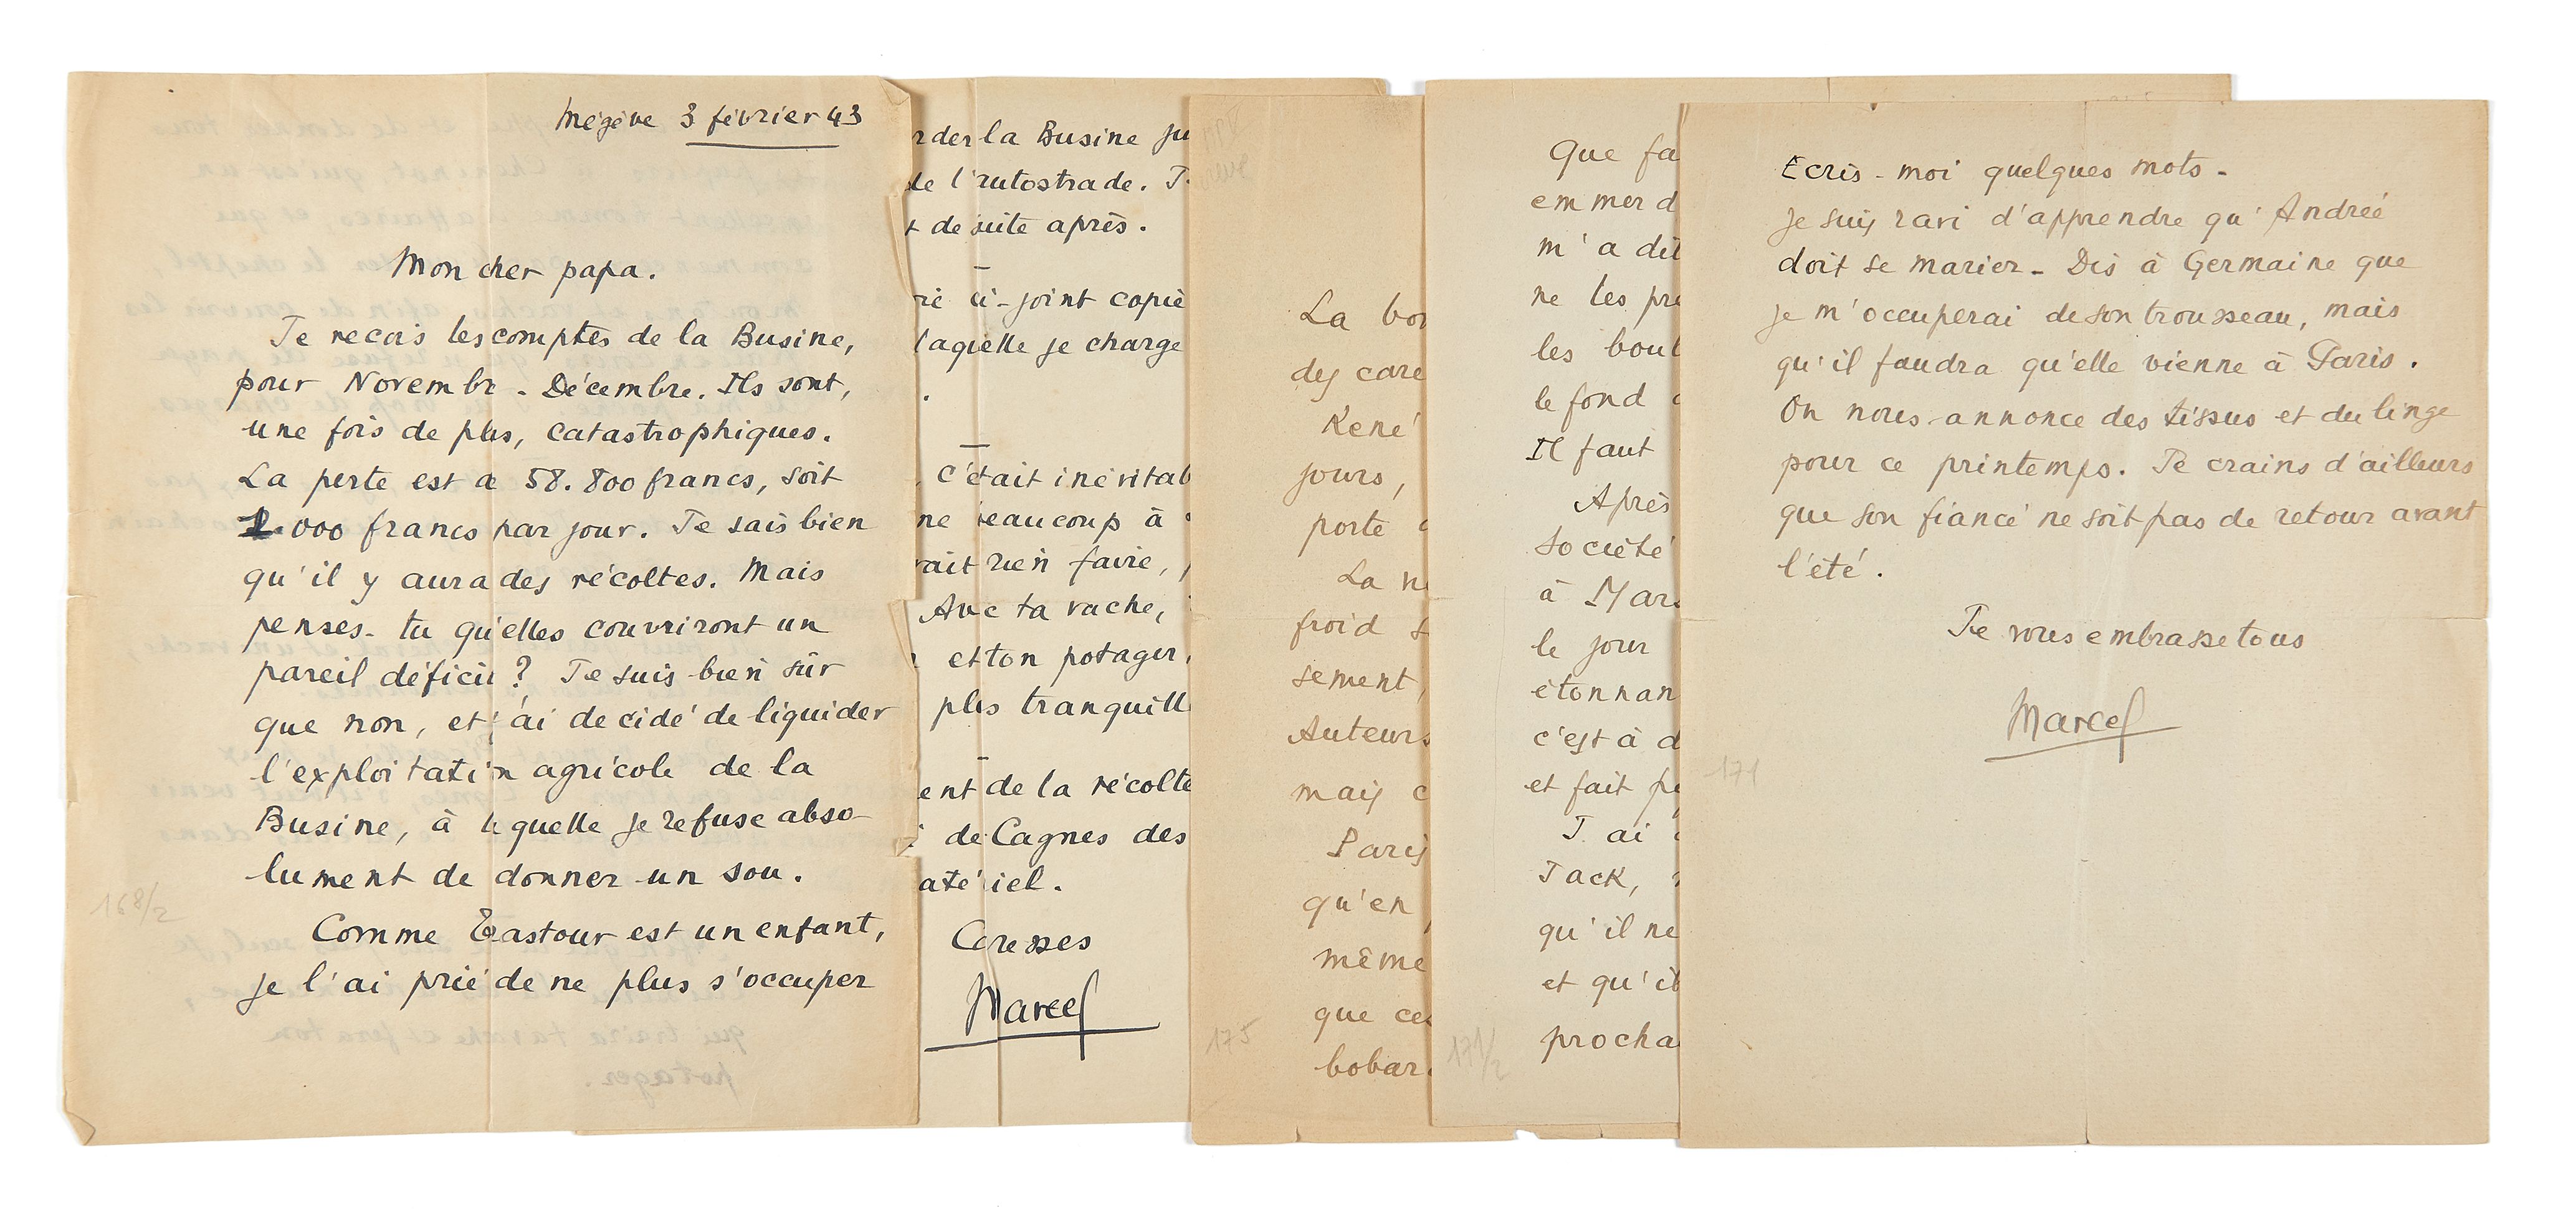 Mégève 3 février 43
Mon cher papa.
Je recois les comptes de la Busine,
pour Novembre - Décembre. Ils sont,
une fois de plus, catastrophiques.
La perte est de 58.800 francs, soit
1.000 francs par jour. Je sais bien
qu'il y aura des récoltes. Mais
penses-tu qu'elles couvriront un
pareil déficit ? Je suis bien sûr
que non, et j'ai decidé de liquider
l'exploitation agricole de la
Busine, à laquelle je refuse abso-
lument de donner un sou.
Comme Tastour est un enfant,
je l'ai prié de ne plus s'occuper
168/2
rder la Busine ju
de l'autostrade. J
t de suite après.
ie ci-joint copie
laquelle je charge
.
, c'était inévitab
ne beaucoup à
rait rien faire,
Avec ta vache,
et ton potager,
plus tranquill
ent de la récolte
de Cagnes des
atériel.
Caresses
Marcel
La bo
des care
René
jours,
porte
La n
froid s
sement,
Auteurs
mais c
Paris
qu'en
même
que ces
bobar
175
Que fa
emmerd
m'a dit
ne les pre
les bout
le fond
Il faut
Après
société
à Mars
le jour
étonnan
c'est à d
et fait pe
J'ai
Jack,
qu'il ne
et qu'il
procha
171/2
Ecris-moi quelques mots.
je suis ravi d'apprendre qu'Andrée
doit se marier. Dis à Germaine que
je m'occuperai de son trousseau, mais
qu'il faudra qu'elle vienne à Paris.
On nous annonce des tissus et du linge
pour ce printemps. Je crains d'ailleurs
que son fiancé ne soit pas de retour avant
l'été.
Je vous embrasse tous
Marcel
171